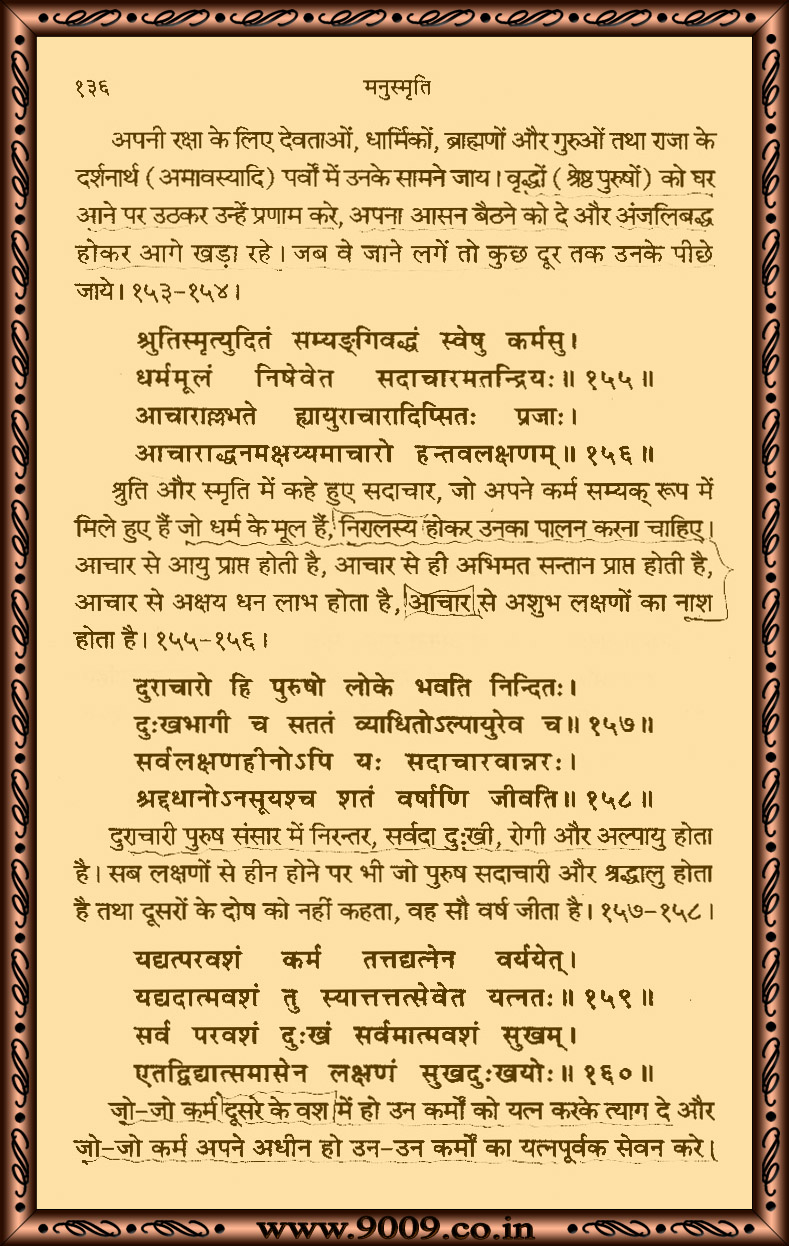 १३६ मनुस्मृति
अपनी रक्षा के लिए देवताओं, धार्मिकों, ब्राह्मणों और गुरुओं तथा राजा के
दर्शनार्थ (अमावस्यादि) पर्वों में उनके सामने जाय। वृद्धों (श्रेष्ठ पुरुषों) को घर
आने पर उठकर उन्हें प्रणाम करे, अपना आसन बैठने को दे और अंजलिबद्ध
होकर आगे खड़ा रहे। जब वे जाने लगें तो कुछ दूर तक उनके पीछे
जाये। १५३-१५४।
श्रुतिस्मृत्युदितं सम्यङ्गिवद्धं स्वेषु कर्मसु।
धर्ममूलं निषेवेत सदाचारमतन्द्रियः॥ १५५॥
आचाराल्लभते ह्यायुराचारादिप्सितः प्रजाः।
आचाराद्धनमक्षय्यमाचारो हन्तवलक्षणम्॥ १५६॥
श्रुति और स्मृति में कहे हुए सदाचार, जो अपने कर्म सम्यक् रूप में
मिले हुए हैं जो धर्म के मूल हैं, निरालस्य होकर उनका पालन करना चाहिए।
आचार से आयु प्राप्त होती है, आचार से ही अभिमत सन्तान प्राप्त होती है,
आचार से अक्षय धन लाभ होता है, आचार से अशुभ लक्षणों का नाश
होता है। १५५-१५६।
दुराचारो हि पुरुषो लोके भवति निन्दितः।
दुःखभागी च सततं व्याधितोऽल्पायुरेव च॥ १५७॥
सर्वलक्षणहीनोऽपि यः सदाचारवान्नरः।
श्रद्दधानोऽनसूयश्च शतं वर्षाणि जीवति॥ १५८॥
दुराचारी पुरुष संसार में निरन्तर, सर्वदा दुःखी, रोगी और अल्पायु होता
है। सब लक्षणों से हीन होने पर भी जो पुरुष सदाचारी और श्रद्धालु होता
है तथा दूसरों के दोष को नहीं कहता, वह सौ वर्ष जीता है। १५७-१५८।
यद्यत्परवशं कर्म तत्तद्यत्नेन वर्ययेत्।
यद्यदात्मवशं तु स्यात्तत्तत्सेवेत यत्नतः॥ १५९॥
सर्व परवशं दुःखं सर्वमात्मवशं सुखम्।
एतद्विद्यात्समासेन लक्षणं सुखदुःखयोः॥ १६०॥
जो-जो कर्म दूसरे के वश में हो उन कर्मों को यत्न करके त्याग दे और
जो-जो कर्म अपने अधीन हो उन-उन कर्मों का यत्नपूर्वक सेवन करे।
www.9009.co.in